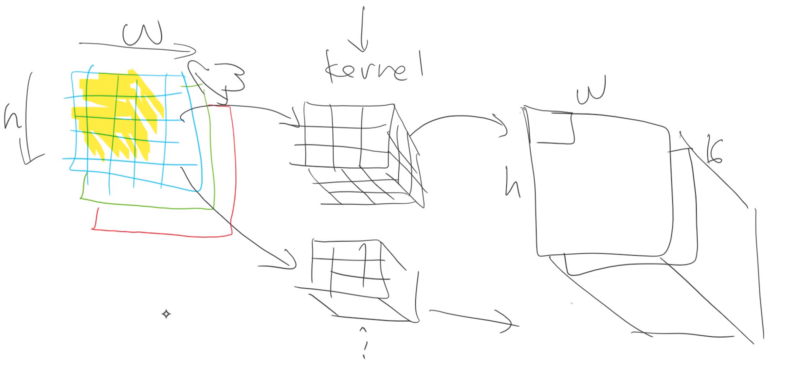 W
3
h
kernel
W
h
16